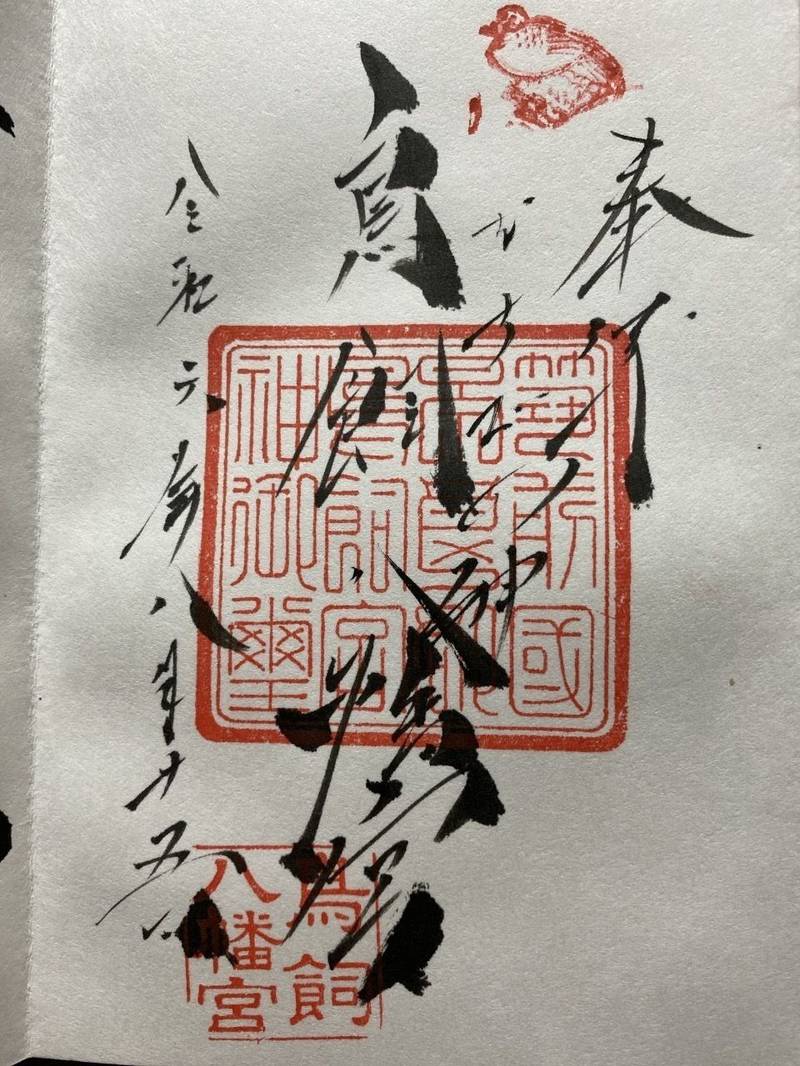 奉拝
神
鳥飼八幡宮
令和六年八月十五日
筑前國
早良郡
鳥飼宮
神御璽
鳥飼
八幡宮